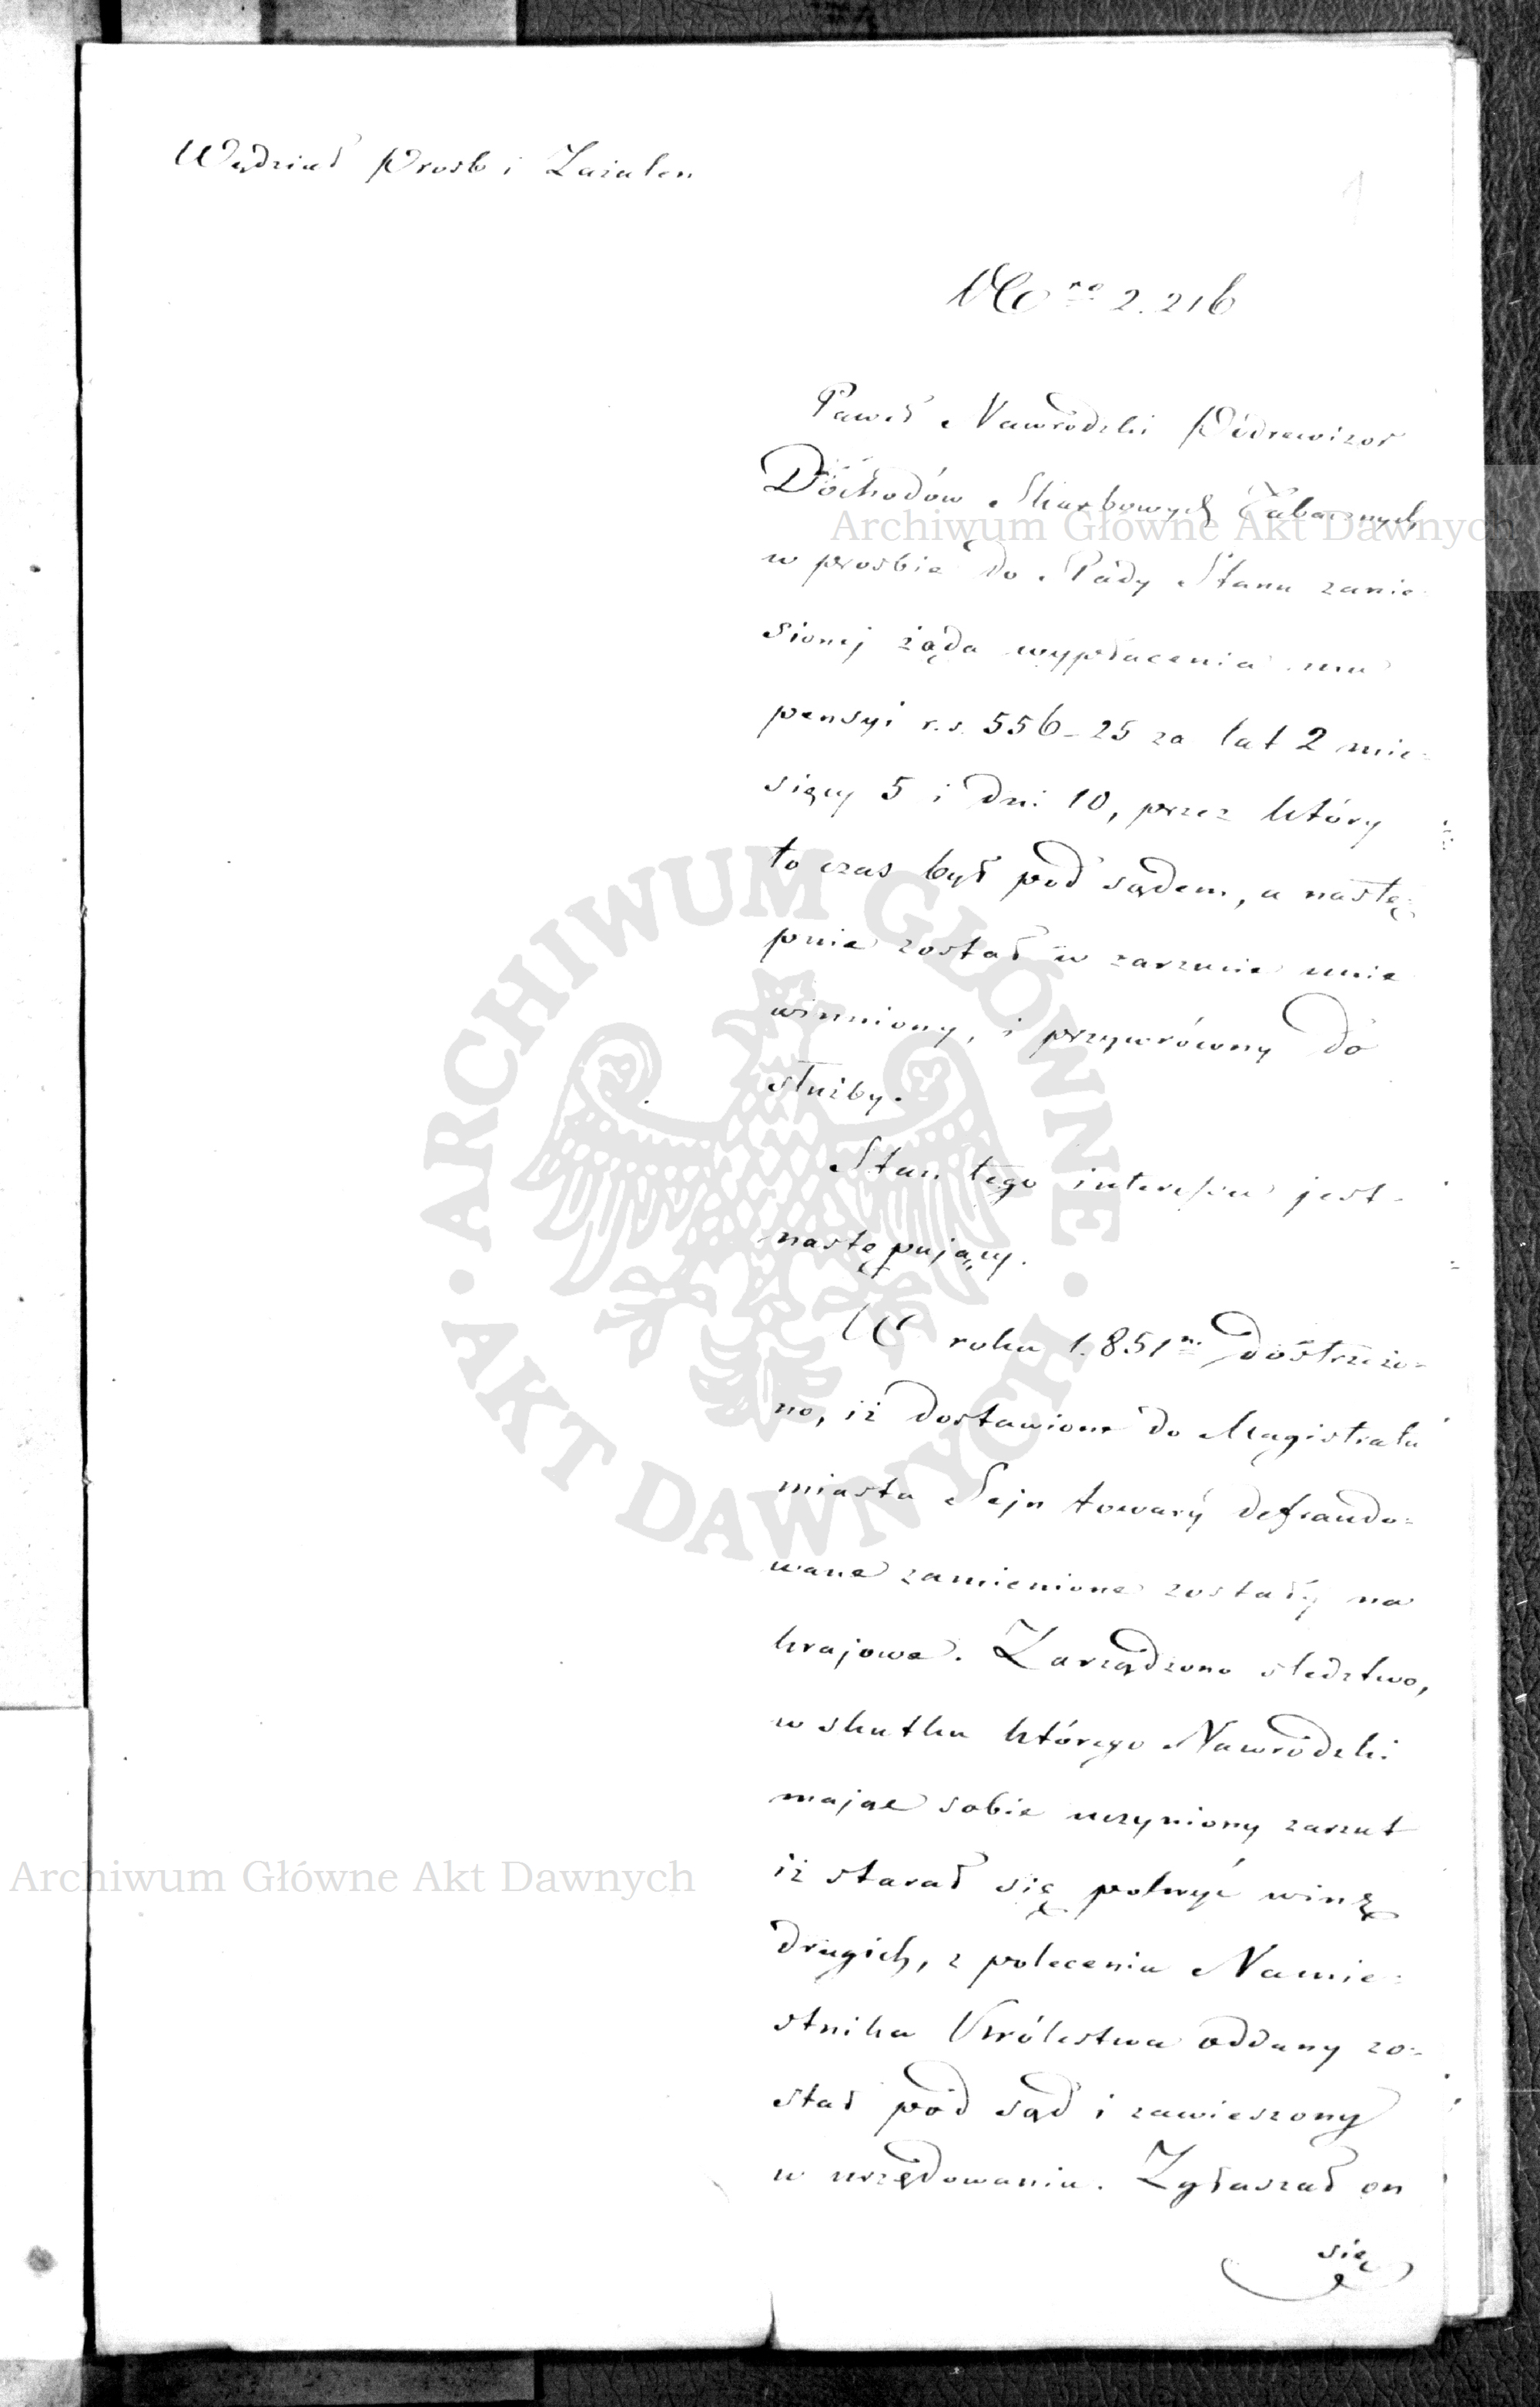 Wydział Prosb i Zażaleń
1
Nro 2.216
Paweł Nawrodzki Podrewizor
Dochodów Skarbowych Tabacznych
w prosbie do Rady Stanu zanie
sionej żąda wypłacenia mu
pensyi r.s. 556-25 za lat 2 mie=
sięcy 5 i dni 10, przez który
to czas był pod sądem, a nastę=
pnie został w zarzucie unie
winniony, i przywrócony do
służby.
Stan tego interessu jest
następujący.
W roku 1.851m dostrzeżo=
no, iż dostawione do Magistratu
miasta Sejn towary defraudo=
wane zamienione zostały na
krajowe. Zarządzono sledztwo,
w skutku którego Nawrodzki
mając sobie uczyniony zarzut
iż starał się pokryć winę
drugich, z polecenia Namie=
stnika Królestwa oddany zo=
stał pod sąd i zawieszony
w urzędowaniu. Zgłaszał on
się
Archiwum Główne Akt Dawnych
Archiwum Główne Akt Dawnych
ARCHIWUM GŁÓWNE AKT DAWNYCH